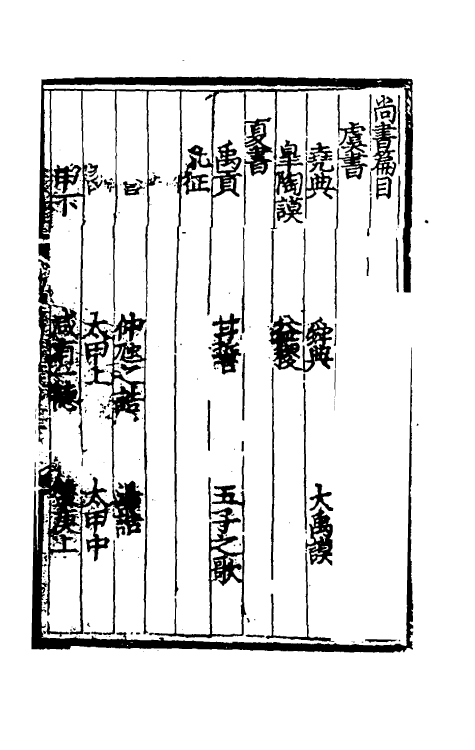 尚書篇目
虞書
堯典 舜典 大禹謨
皐陶謨 益稷
夏書
禹貢 甘誓 五子之歌
征
仲虺之誥 湯誥
太甲上 太甲中
甲下 咸有一德 庚上